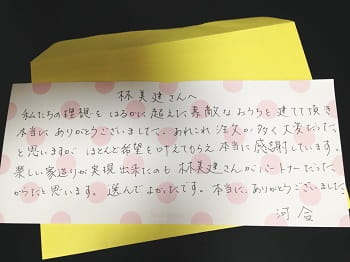 林美建さんへ
私たちの理想をはるかに超えた素敵なおうちを建てて頂き
本当にありがとうございました。あれこれ注文が多く大変だった
と思いますが、ほとんど希望を叶えてもらえ本当に感謝しています。
楽しい家造りが実現出来たのも林美建さんがパートナーだった
からだと思います。選んでよかったです。本当に、ありがとうございました。
河合